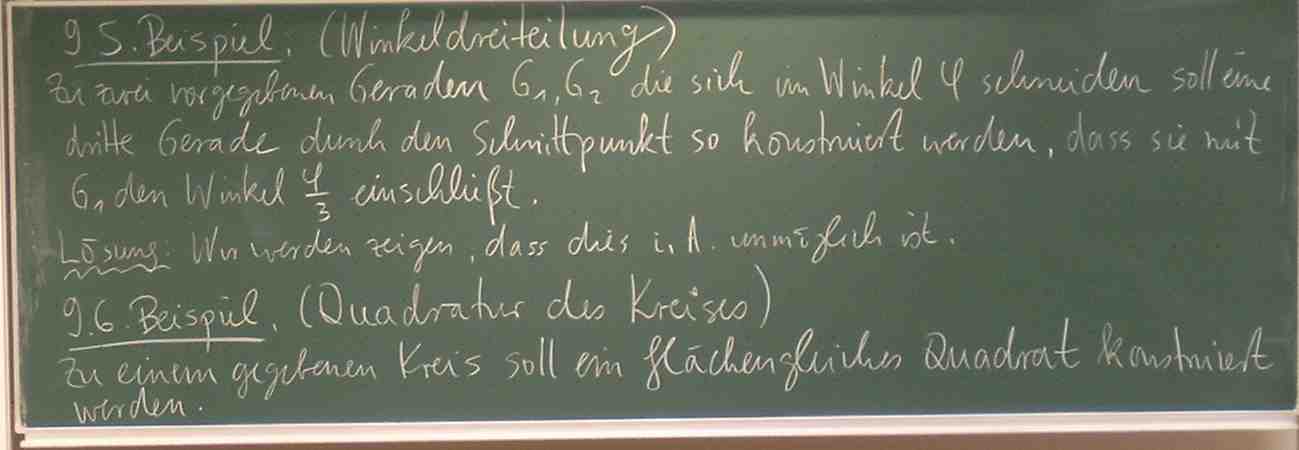 9.5. Beispiel. (Winkeldreiteilung)
Zu zwei vorgegebenen Geraden G₁, G₂ die sich im Winkel φ schneiden soll eine
dritte Gerade durch den Schnittpunkt so konstruiert werden, dass sie mit
G₁ den Winkel φ/3 einschließt.
Lösung: Wir werden zeigen, dass dies i. A. unmöglich ist.
9.6. Beispiel. (Quadratur des Kreises)
Zu einem gegebenen Kreis soll ein flächengleiches Quadrat konstruiert
werden.